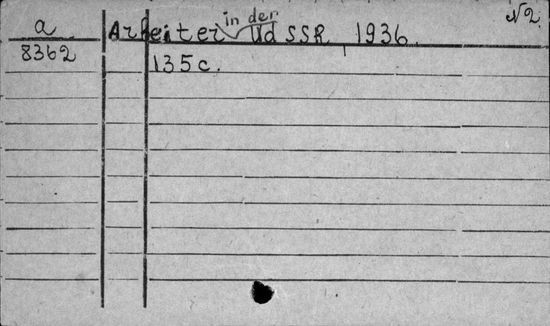 a Arbeiter in der UdSSR, 1936. N2.
8362 135 c.